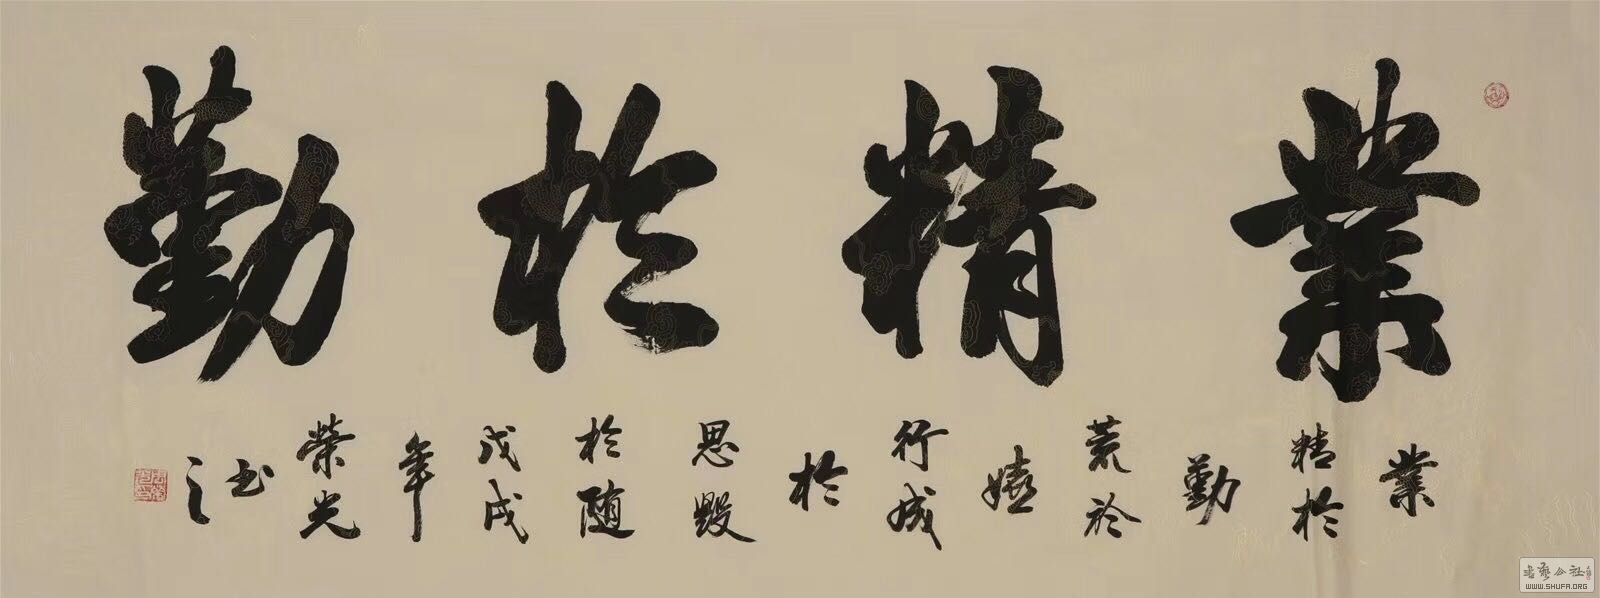 業精於勤
業精於勤荒於嬉行成於思毀於随戊戌年榮光书之
书艺公社
WWW.SHUFA.ORG